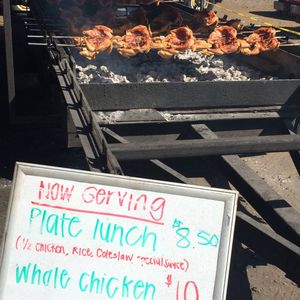 Now Serving
Plate lunch $8.50
(1/2 chicken, Rice, Coleslaw special sauce)
Whole Chicken $10